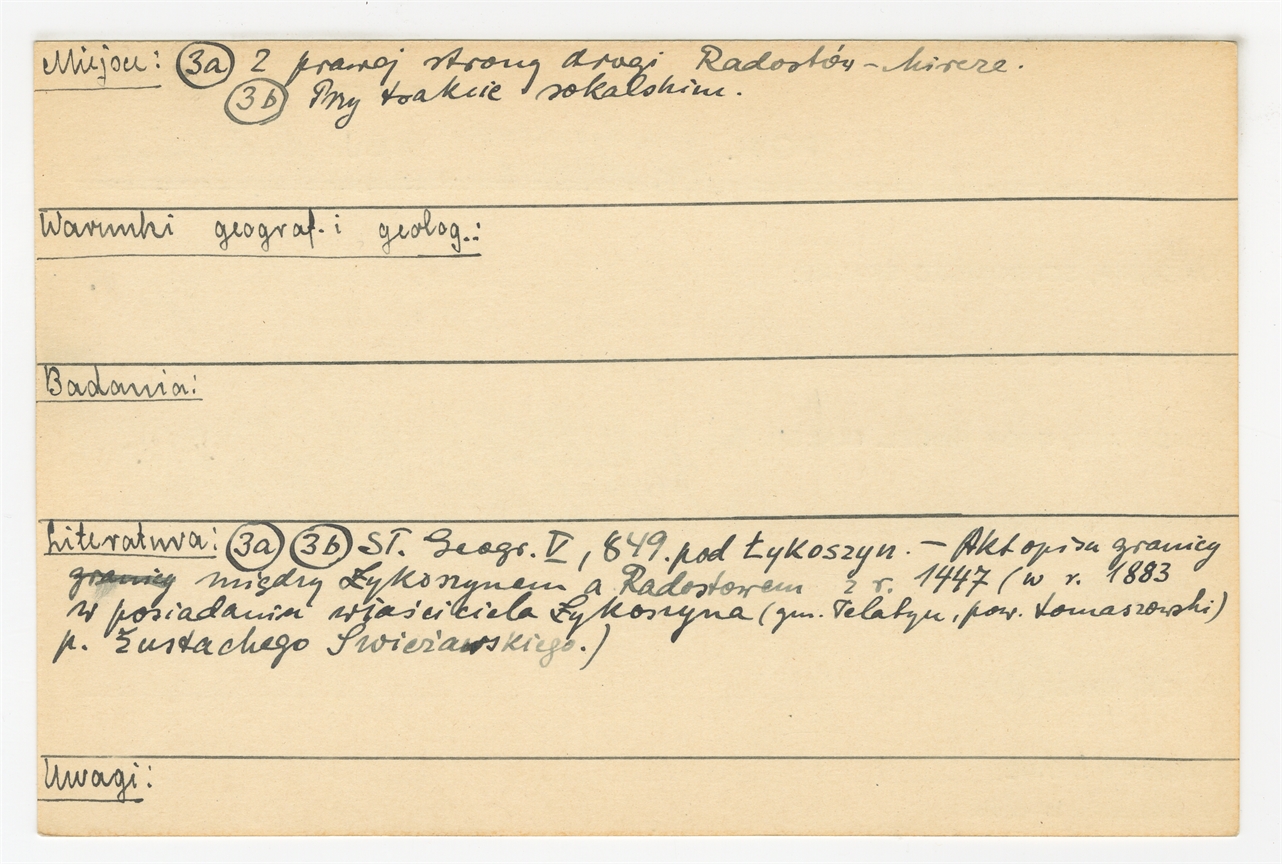 Miejsce: (3a) Z prawej strony drogi Radostów – Mircze.
(3b) Przy trakcie sokalskim.
Warunki geograf. i geolog.:
Badania:
Literatura: (3a) (3b) Sł. Geogr. V, 849. pod Łykoszyn. – Akt opisu granicy
granicy między Łykoszynem a Radostowem z r. 1447 (w r. 1883
w posiadaniu właściciela Łykoszyna (gm. Telatyn, pow. tomaszowski)
p. Eustachego Swieżawskiego.)
Uwagi: